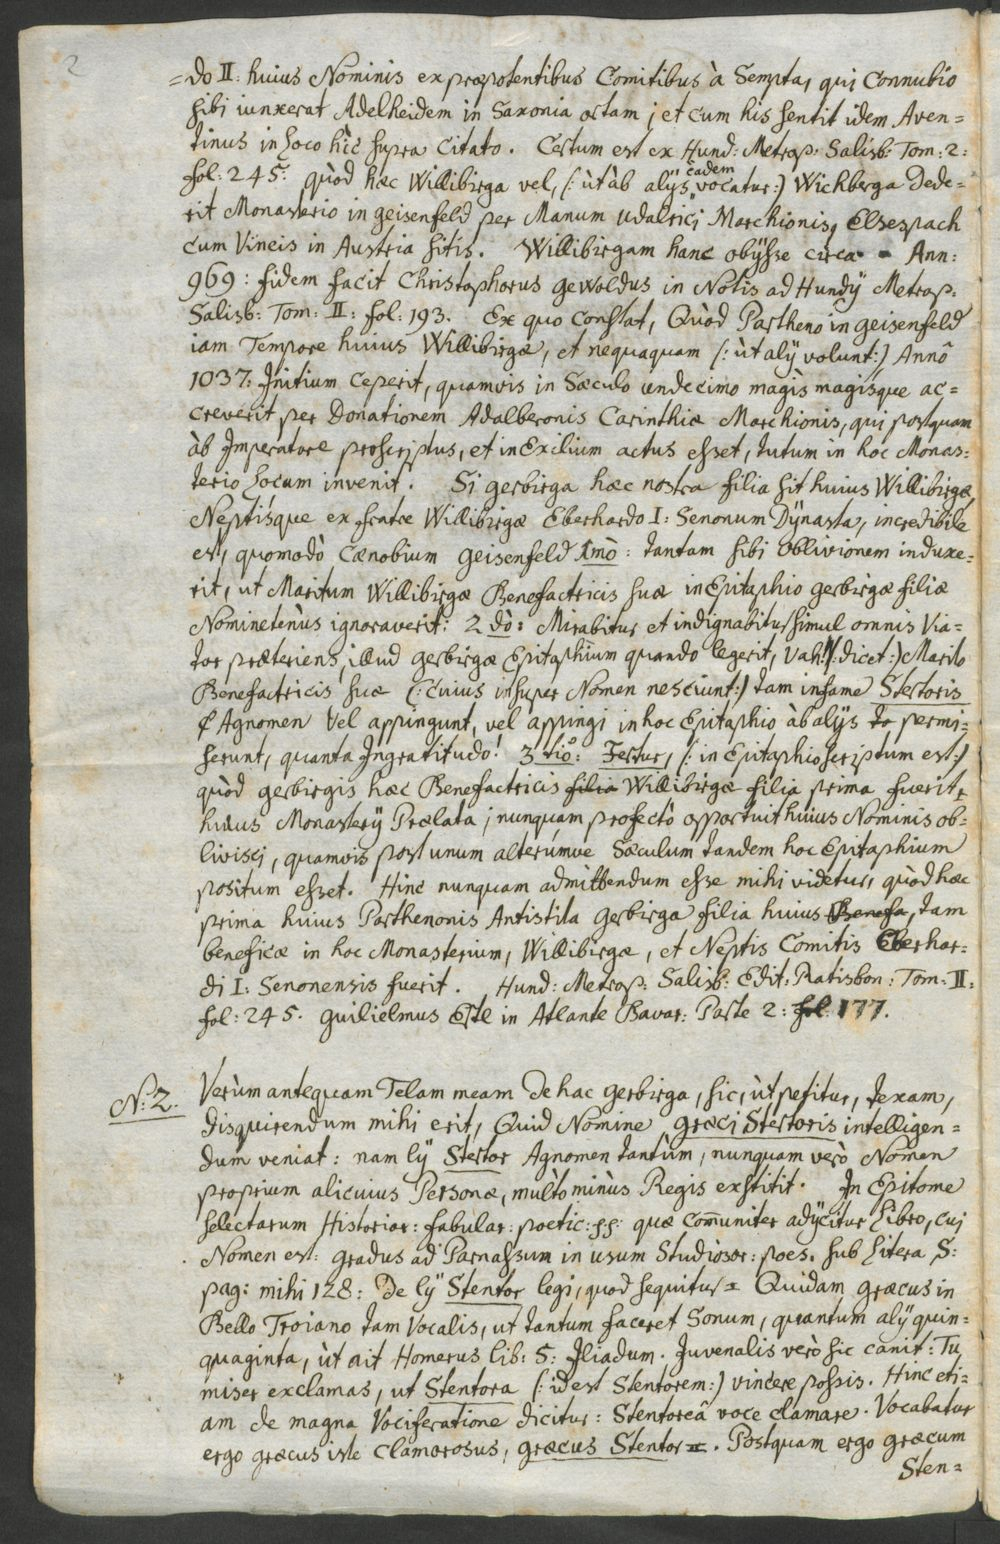 2
=do II: huius Nominis ex præpotentibus Comitibus à Sempta, qui Connubio
sibi iunxerat Adelheidem in Saxonia ortam; et cum his sentit idem Aven=
tinus in Loco hîc supra citato. Certum est ex Hund: Metrop: Salisb: Tom: 2:
fol: 245. quòd hæc Willibirga vel, (: ùt àb alijs eadem vocatur:) Wichberga Dede=
rit Monasterio in geisenfeld per Manum Udalrici Marchionis, Elsespach
cum Vineis in Austria sitis. Willibirgam hanc obijsse circa Ann:
969: fidem facit Christophorus gewoldus in Notis ad Hundij Metrop:
Salisb: Tom: II: fol: 193. Ex quo constat, Quòd Partheno in geisenfeld
iam Tempore huius Willibirgæ, et nequaquam (: ùt alij volunt:) Annô
1037: Initium ceperit, quamvis in Sæculo undecimo magìs magísque ac=
creverit per Donationem Adalberonis Carinthiæ Marchionis, qui postquam
àb Imperatore proscriptus, et in Exilium actus esset, tutum in hoc Monas=
terio Locum invenit. Si gerbirga hæc nostra filia sit huius Willibirgæ,
Neptísque ex fratre Willibirgæ Eberhardo I: Senonum Dÿnasta, incredibile
est, quomodò Cænobium geisenfeld 1mò: tantam sibi Oblivionem induxe=
rit, ut Maritum Willibirgæ Benefactricis suæ in Epitaphio gerbirgæ filiæ
Nominetenùs ignoraverit: 2dò: Mirabitur et indignabitur simul omnis Via=
tor præteriens, illud gerbirgæ Epitaphium quando legerit, Vah! (: dicet:) Marito
Benefactricis suæ (: cuius insuper Nomen nesciunt:) tam infame Stertoris
Agnomen vel appingunt, vel appingi in hoc Epitaphio àb alijs permi=
serunt, quanta Ingratitudo! 3tiò: Fertur, (: in Epitaphio scriptum est:)
quòd gerbirgis hæc Benefactricis filia Willibirgæ filia prima fuerit,
huius Monasterij Prælata; nunquam profectò opportuit huius Nominis ob=
livisci, quamvis post unum alterúmve Sæculum tandem hoc Epitaphium
positum esset. Hinc nunquam admittendum esse mihi videtur, quòd hæc
prima huius Parthenonis Antistita gerbirga filia huius Benefa, tam
beneficæ in hoc Monasterium, Willibirgæ, et Neptis Comitis Eberhar=
di I: Senonensis fuerit. Hund: Metrop: Salisb: Edit: Ratisbon: Tom: II:
fol: 245. guilielmus Ertl in Atlante Bavar: Parte 2: fol: 177.
N: 2. Verùm antequam Telam meam de hac gerbirga, sic, ùt petitur, texam,
disquirendum mihi erit, Quid Nomine græci Stertoris intelligen=
dum veniat: nam lÿ Stertor Agnomen tantùm, nunquam verò Nomen
proprium alicuius Personæ, multò minùs Regis exstitit. In Epitome
selectarum Historiar: fabular: poetic: ss: quæ com̄uniter adijcitur Libro, cui
Nomen est: gradus ad Parnassum in usum Studiosor: poes. sub Litera S:
pag: mihi 128: De lÿ Stentor legi, quod sequitur = Quidam græcus in
Bello Troiano tam Vocalis, ut tantum faceret Sonum, quantum alij quin=
quaginta, ùt ait Homerus lib: 5: Iliadum. Juvenalis verò sic canit: Tu
miser exclamas, ut Stentora (: id est Stentorem:) vincere possis. Hinc eti=
am de magna Vociferatione dicitur: Stentoreâ voce clamare. Vocabatur
ergo græcus iste clamorosus, græcus Stentor =. Postquam ergo græcum
Sten=